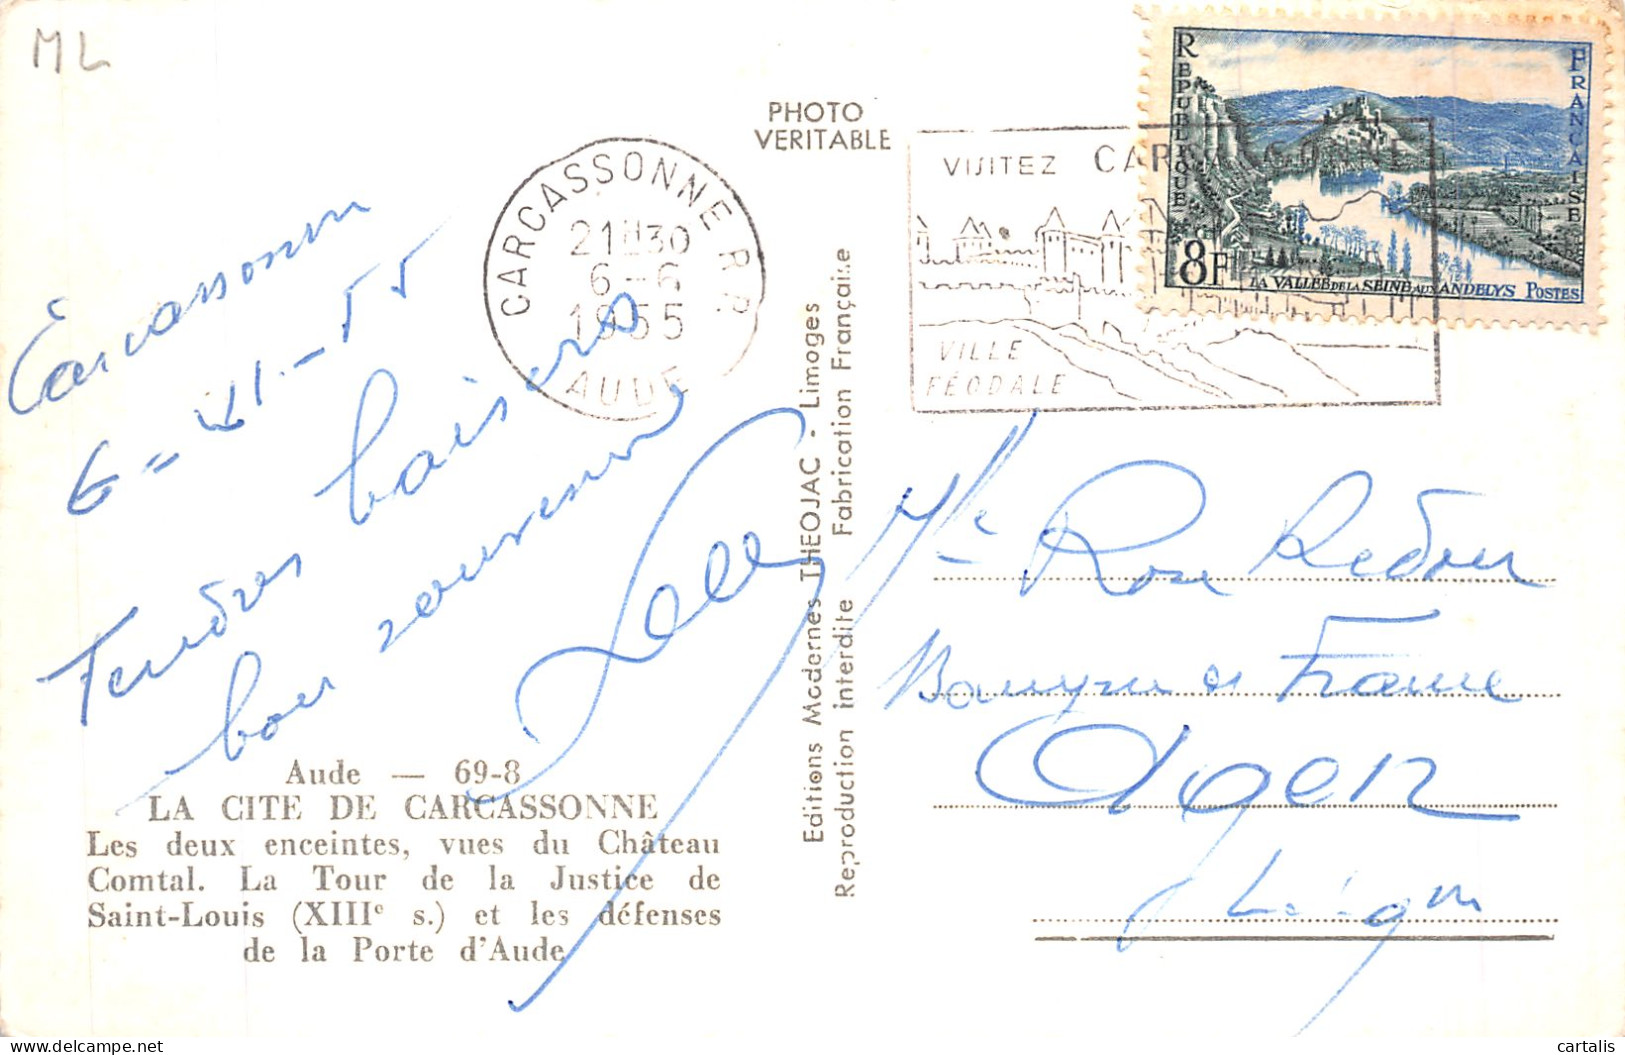 ML
PHOTO
VERITABLE
CARCASSONNE R.P.
21H30
6-6
1955
AUDE
VISITEZ CARCASSONNE
VILLE
FÉODALE
REPUBLIQUE FRANÇAISE
8F
LA VALLÉE DE LA SEINE AUX ANDELYS POSTES
Carcassonne
6-VI-55
Tendres baisers
bon souvenir
Editions Modernes THEOJAC - Limoges
Reproduction interdite Fabrication Française
Mlle Rose Redon
Banque de France
Agen
Aude — 69-8
LA CITE DE CARCASSONNE
Les deux enceintes, vues du Château
Comtal. La Tour de la Justice de
Saint-Louis (XIIIe s.) et les défenses
de la Porte d'Aude
cartalis